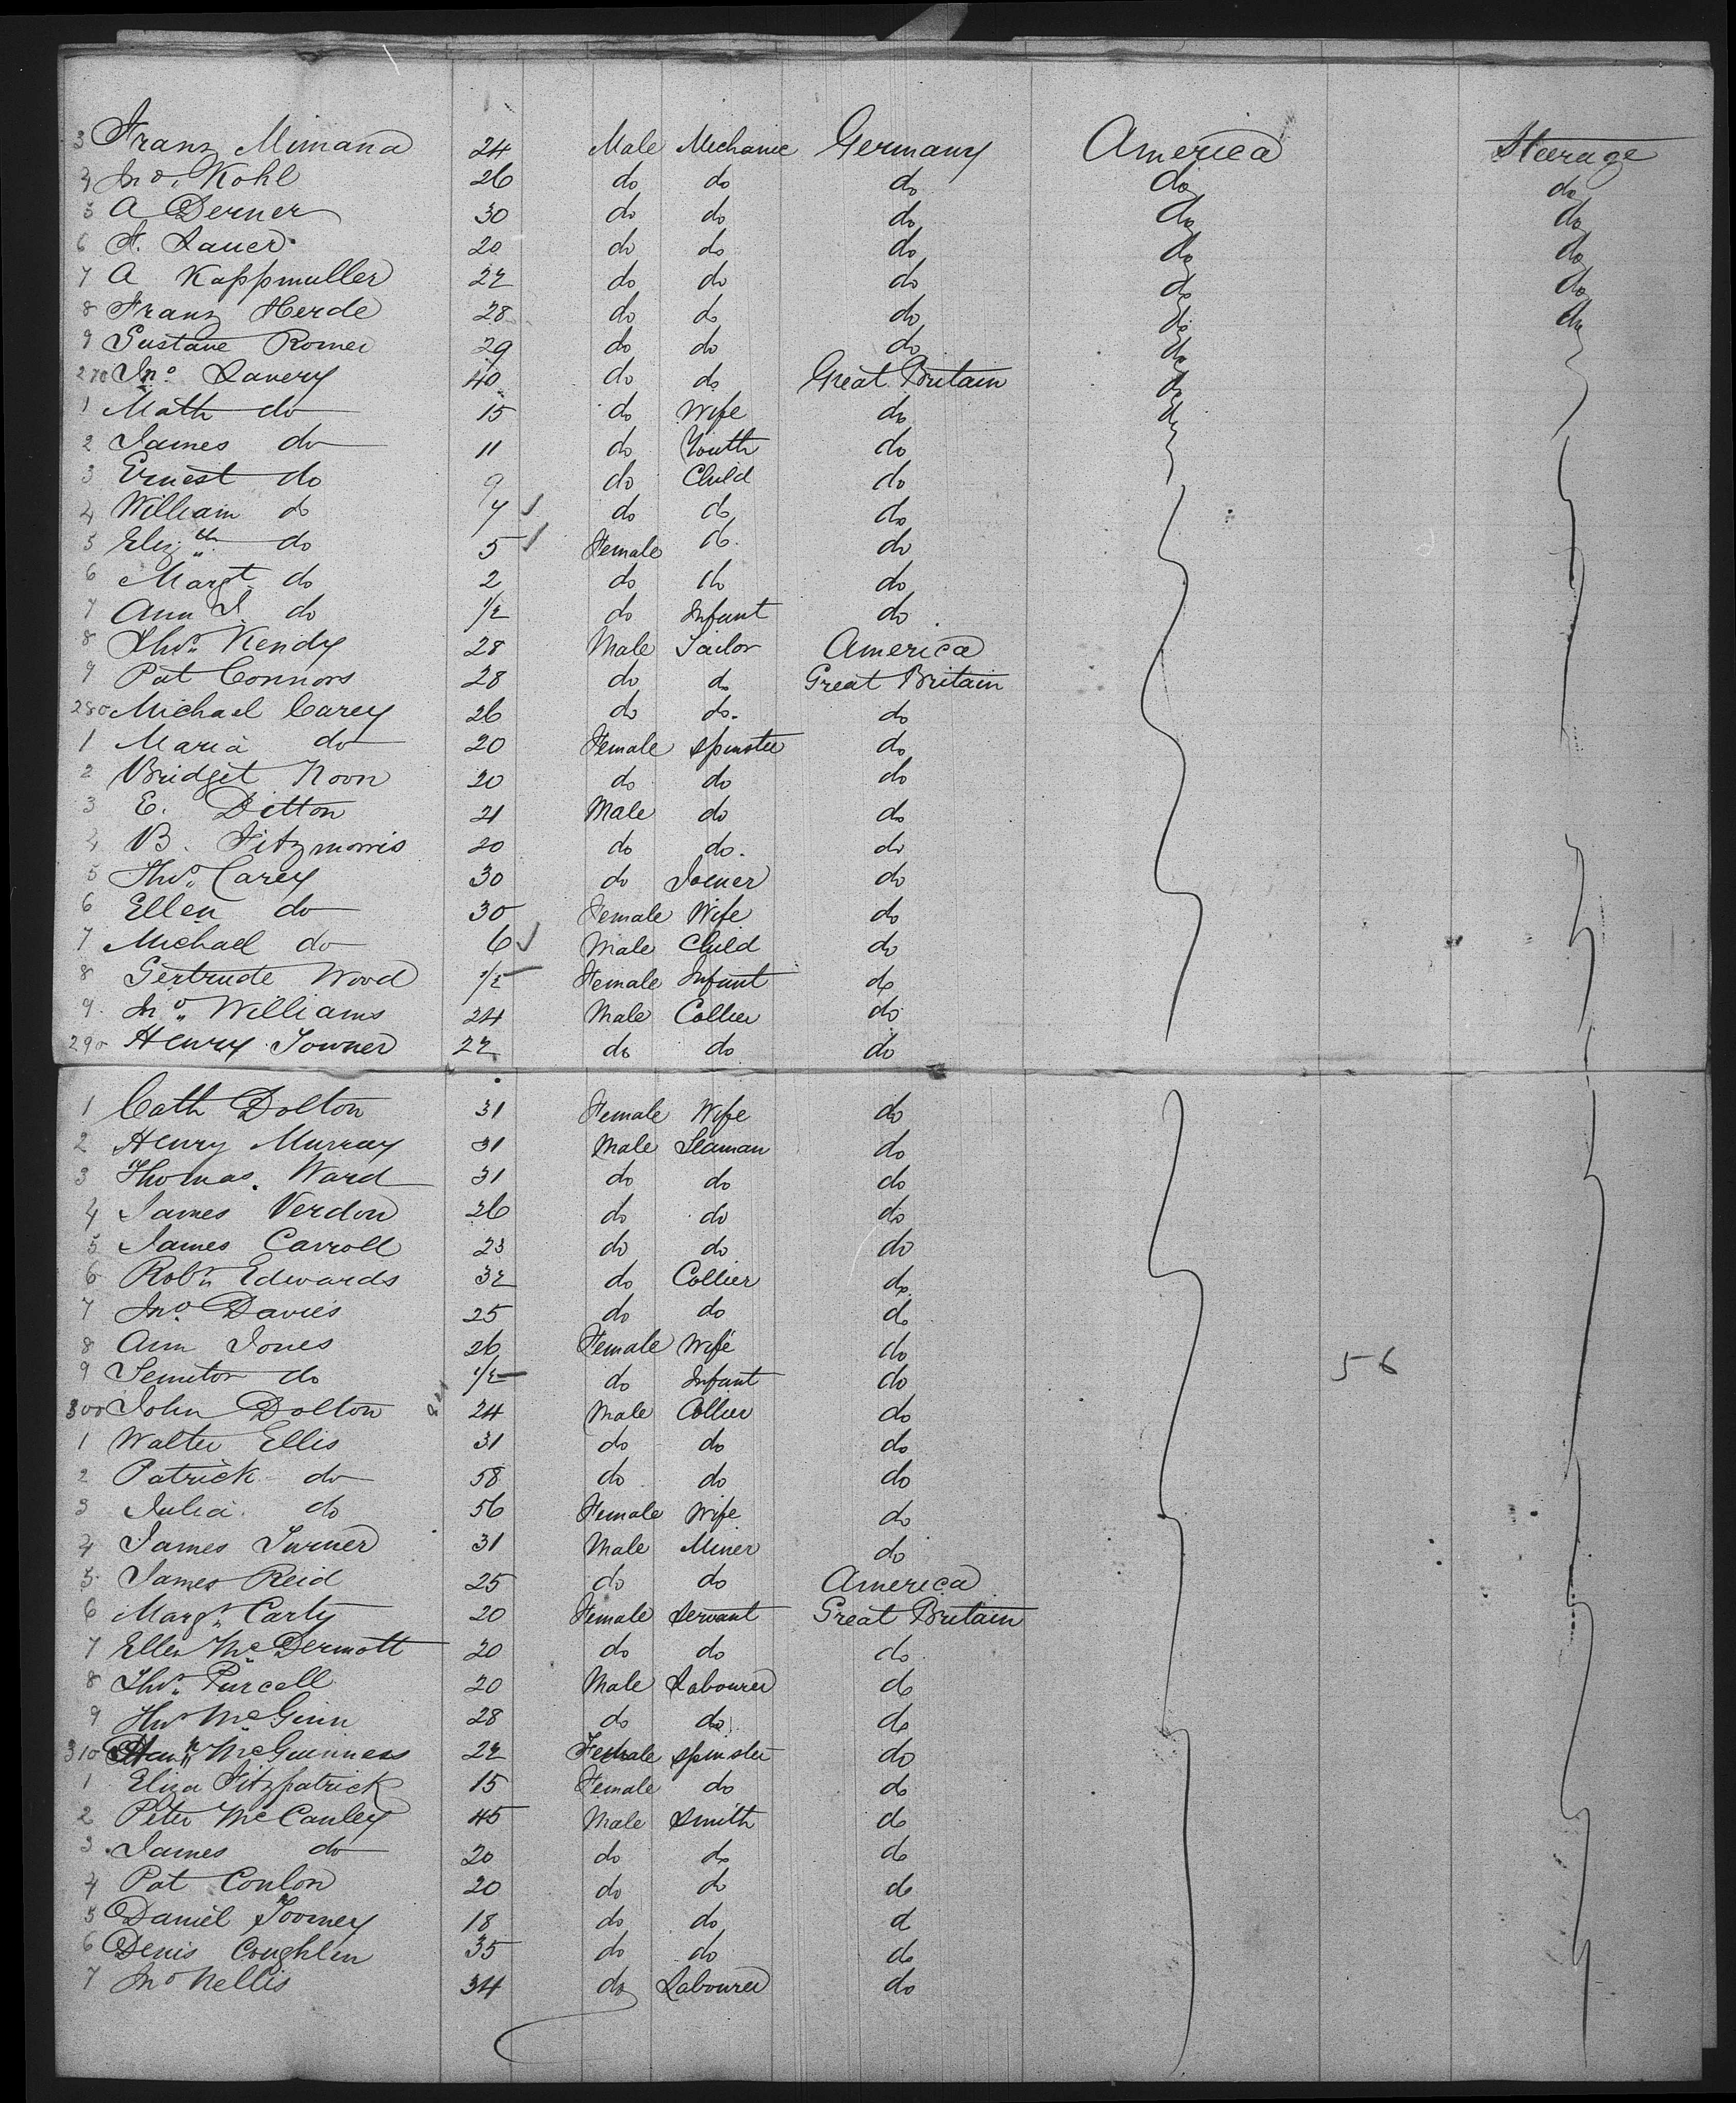 3 Franz Mimana 24 Male Mechanic Germany America Steerage
4 Jno. Kohl 26 do do do do do
5 A Derner 30 do do do do do
6 F. Lauer 20 do do do do do
7 A Kappmuller 22 do do do do do
8 Franz Herde 28 do do do do do
9 Gustave Romer 29 do do do do
270 Jno. Lavery 40 do do Great Britain do
1 Math do 15 do Wife do do
2 James do 11 do Youth do
3 Ernest do 9 do Child do
4 William do 7 do do do
5 Elizth do 5 Female do. do
6 Margt do 2 do do do
7 Ann J. do 1/2 do Infant do
8 Thos. Kendy 28 Male Sailor America
9 Pat Connors 28 do do Great Britain
280 Michael Carey 26 do do. do
1 Maria do 20 Female Spinster do
2 Bridget Noon 20 do do do
3 E. Ditton 21 Male do do
4 B. Fitzmorris 20 do do. do
5 Thos. Carey 30 do Joiner do
6 Ellen do 30 Female Wife do
7 Michael do 6 Male Child do
8 Gertrude Wood 1/2 Female Infant do
9. Jno. Williams 24 Male Collier do
290 Henry Towner 22 do do do
1 Cath Dolton 31 Female Wife do
2 Henry Murray 31 Male Seaman do
3 Thomas. Ward 31 do do do
4 James Verdon 26 do do do
5 James Carroll 23 do do do
6 Robt. Edwards 32 do Collier do
7 Jno. Davies 25 do do do
8 Ann Jones 26 Female Wife do
9 do 1/2 do Infant do 56
300 John Dolton 24 Male Collier do
1 Walter Ellis 31 do do do
2 Patrick do 58 do do do
3 Julia do 56 Female Wife do
4 James Turner 31 Male Miner do
5 James Reid 25 do do America
6 Margt. Carty 20 Female Servant Great Britain
7 Ellen McDermott 20 do do do
8 Thos. Purcell 20 Male Labourer do
9 Thos McGinn 28 do do do
310 McGuinness 22 Female Spinster do
1 Eliza Fitzpatrick 15 Female do do
2 Peter McCauley 45 Male Smith do
3 James do 20 do do do
4 Pat Conlon 20 do do do
5 Daniel Toomey 18 do do d
6 Denis Coughlin 35 do do do
7 Jno Nellis 34 do Labourer do